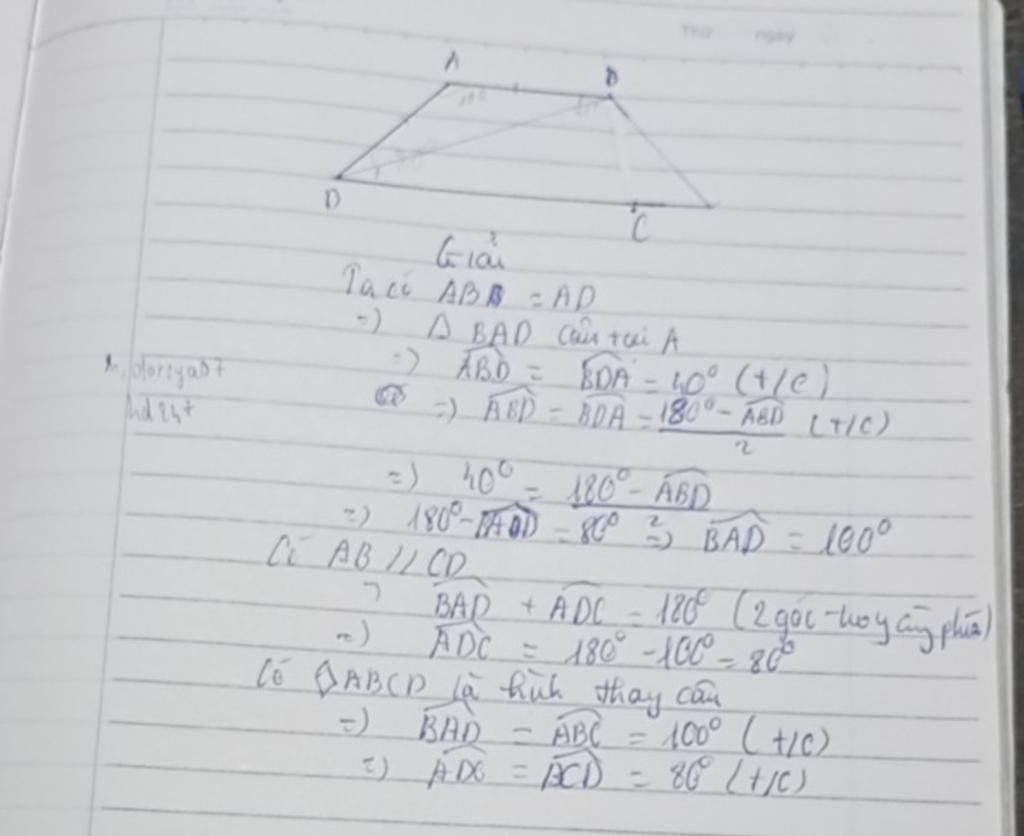 Thứ ngày
A B
D C
Giải
Ta có AB = AD
=) Δ BAD cân tại A
=) ABD = BDA = 40° (t/c)
=) ABD = BDA = 180° - ABD / 2 (t/c)
=) 40° = 180° - ABD / 2
=) 180° - BAD = 80° =) BAD = 100°
Có AB // CD
=) BAD + ADC = 180° (2 góc cùng phía)
=) ADC = 180° - 100° = 80°
Có ◊ABCD là hình thay cân
=) BAD = ABC = 100° (t/c)
=) ADC = BCD = 80° (t/c)